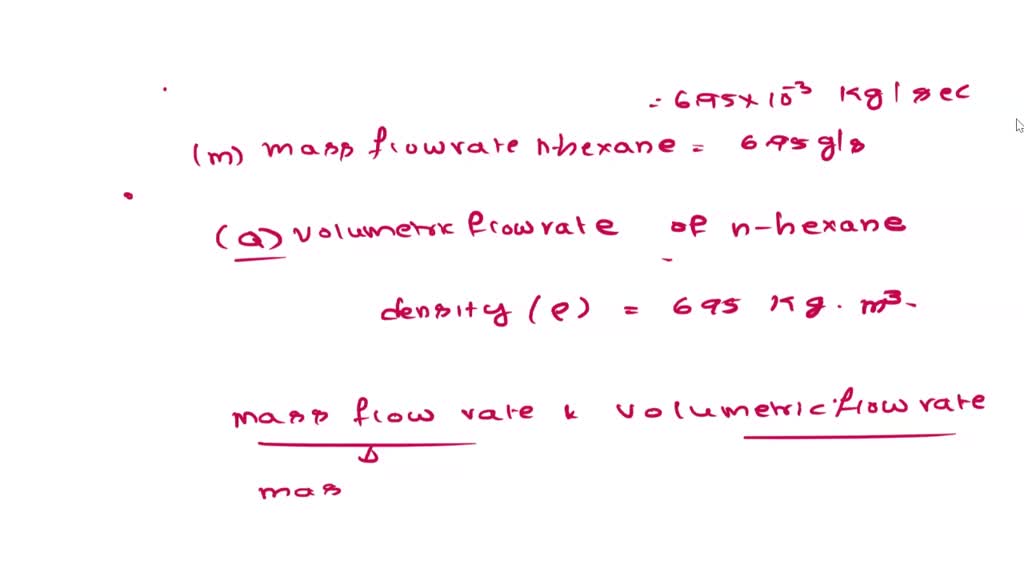 = 695×10⁻³ Kg/sec
(m) mass flowrate n-hexane = 695 g/s
(Q) volumetric flowrate of n-hexane
density (ρ) = 695 Kg. m³-
mass flow rate & volumetric flow rate
mas